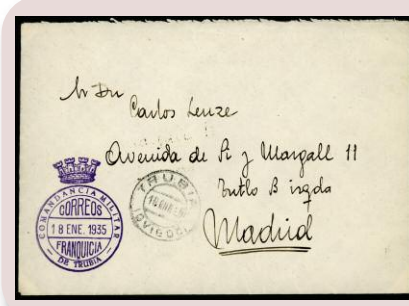 Sr Dn
Carlos Lenze
Avenida de Pi y Margall 11
Entlo B izqda
Madrid
COMANDANCIA MILITAR
CORREOS
18 ENE. 1935
FRANQUICIA
DE TRUBIA
TRUBIA
18 ENE 35
OVIEDO